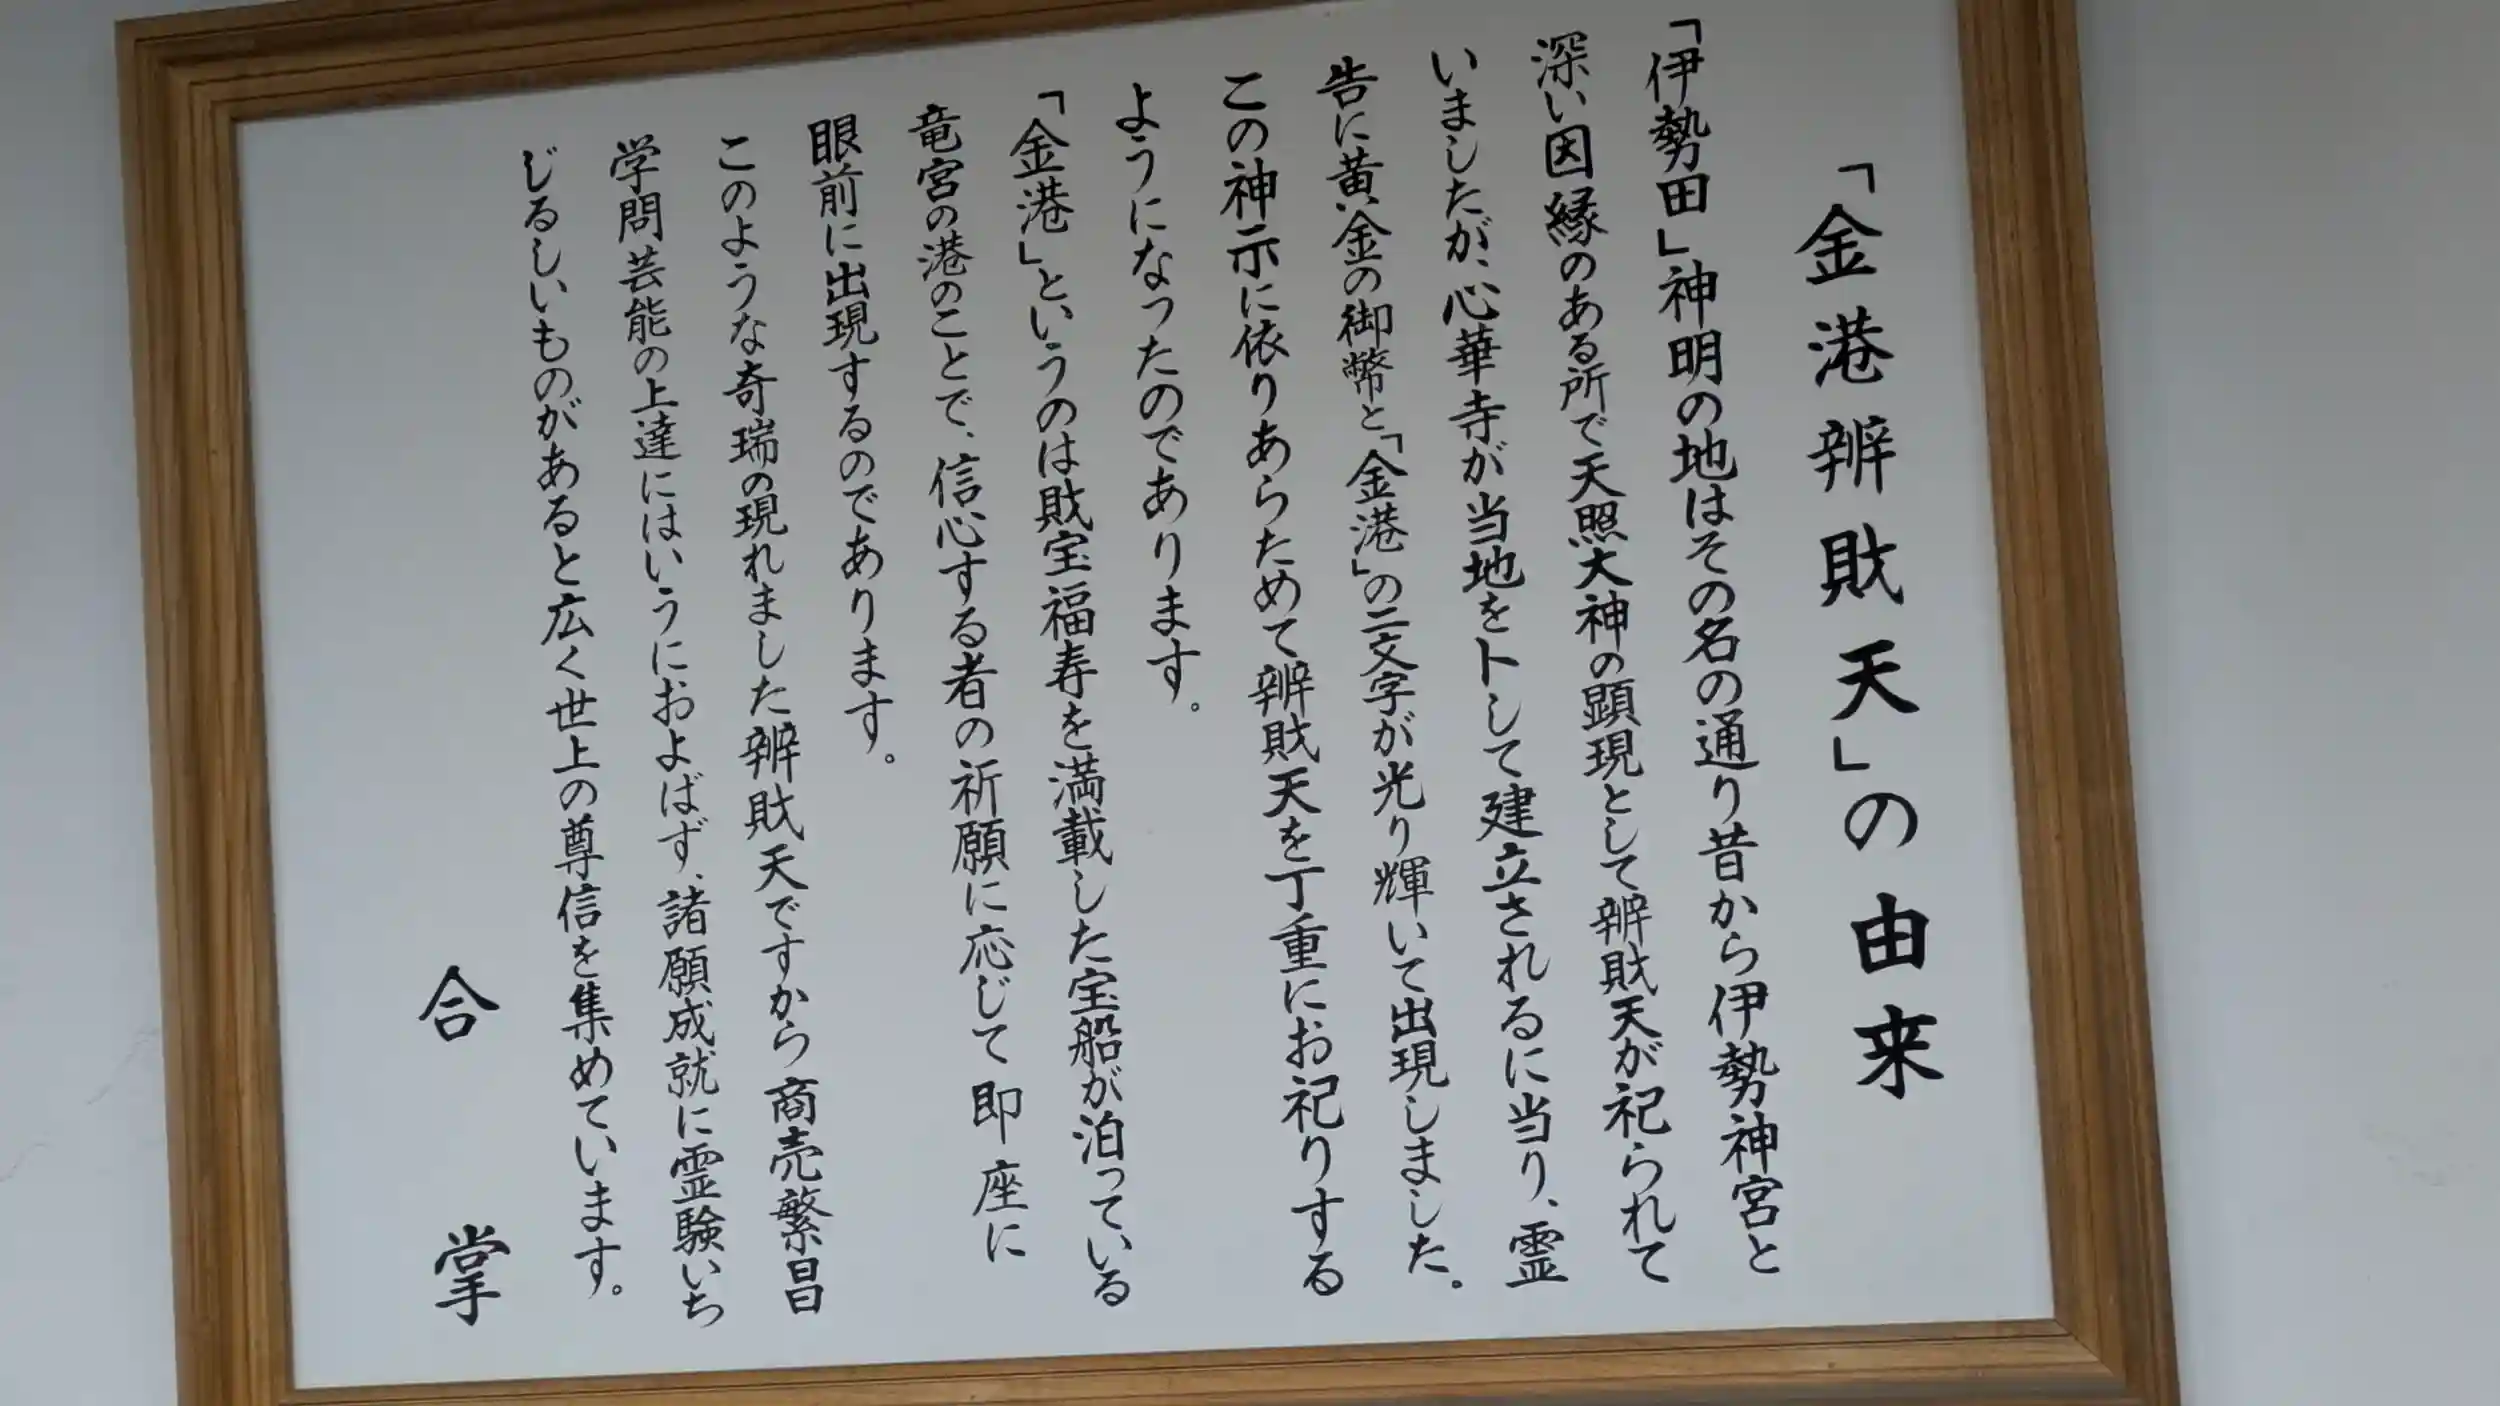 「金港辨財天」の由来
「伊勢田」神明の地はその名の通り昔から伊勢神宮と
深い因縁のある所で天照大神の顕現として辨財天が祀られて
いましたが、心華寺が当地をトして建立されるに当り、霊
告に黄金の御幣と「金港」の二文字が光り輝いて出現しました。
この神示に依りあらためて辨財天を丁重にお祀りする
ようになったのであります。
「金港」というのは財宝福寿を満載した宝船が泊っている
竜宮の港のことで、信心する者の祈願に応じて即座に
眼前に出現するのであります。
このような奇瑞の現れました辨財天ですから商売繁昌
学問芸能の上達にはいうにおよばず、諸願成就に霊験いち
じるしいものがあると広く世上の尊信を集めています。
合掌